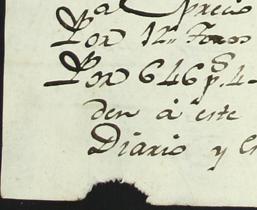 al precio
Por 12„ Tomos
Por 646 p.s 4
den á este
Diario y